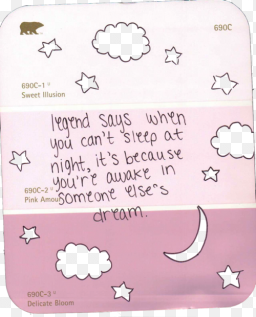 690C
690C-1
Sweet Illusion
legend says when
you can't sleep at
night, it's because
you're awake in
someone else's
dream.
690C-2
Pink Amou
690C-3
Delicate Bloom